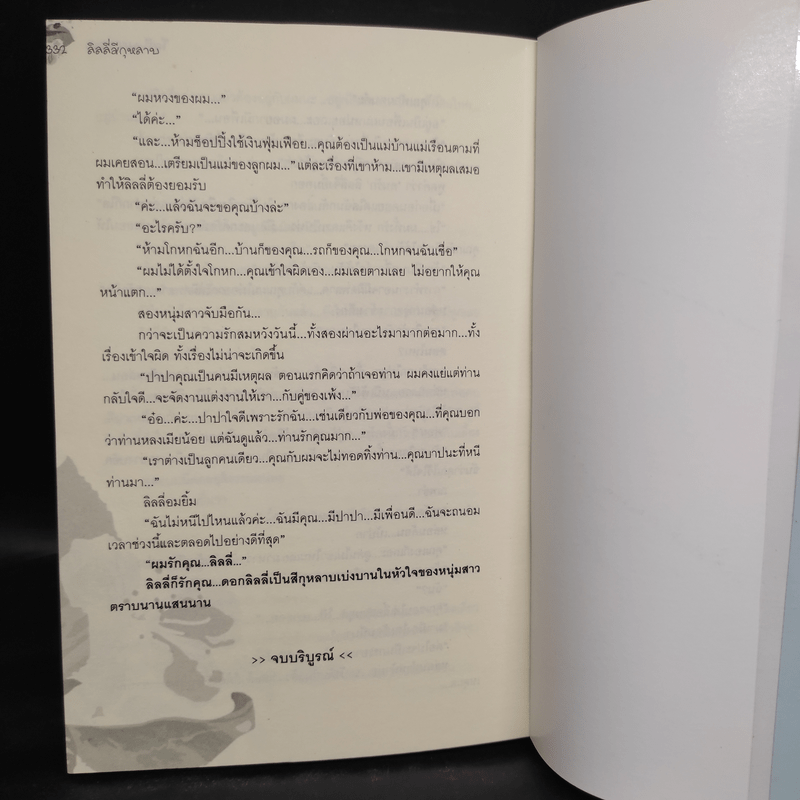 332 ลิลลี่สีกุหลาบ
“ผมหวงของผม...”
“ได้ค่ะ...”
“และ...ห้ามช็อปปิ้งใช้เงินฟุ่มเฟือย...คุณต้องเป็นแม่บ้านแม่เรือนตามที่
ผมเคยสอน...เตรียมเป็นแม่ของลูกผม...” แต่ละเรื่องที่เขาห้าม...เขามีเหตุผลเสมอ
ทำให้ลิลลี่ต้องยอมรับ
“ค่ะ...แล้วฉันจะขอคุณบ้างล่ะ”
“อะไรครับ?”
“ห้ามโกหกฉันอีก...บ้านก็ของคุณ...รถก็ของคุณ...โกหกจนฉันเชื่อ”
“ผมไม่ได้ตั้งใจโกหก...คุณเข้าใจผิดเอง...ผมเลยตามเลย ไม่อยากให้คุณ
หน้าแตก...”
สองหนุ่มสาวจับมือกัน...
กว่าจะเป็นความรักสมหวังวันนี้...ทั้งสองผ่านอะไรมามากต่อมาก...ทั้ง
เรื่องเข้าใจผิด ทั้งเรื่องไม่น่าจะเกิดขึ้น
“ปาปาคุณเป็นคนมีเหตุผล ตอนแรกคิดว่าถ้าเจอท่าน ผมคงแย่แต่ท่าน
กลับใจดี...จะจัดงานแต่งงานให้เรา...กับคู่ของเพ้ง...”
“อ๋อ...ค่ะ...ปาปาใจดีเพราะรักฉัน...เช่นเดียวกับพ่อของคุณ...ที่คุณบอก
ว่าท่านหลงเมียน้อย แต่ฉันดูแล้ว...ท่านรักคุณมาก...”
“เราต่างเป็นลูกคนเดียว...คุณกับผมจะไม่ทอดทิ้งท่าน...คุณบาปนะที่หนี
ท่านมา...”
ลิลลี่อมยิ้ม
“ฉันไม่หนีไปไหนแล้วค่ะ...ฉันมีคุณ...มีปาปา...มีเพื่อนดี...ฉันจะถนอม
เวลาช่วงนี้และตลอดไปอย่างดีที่สุด”
“ผมรักคุณ...ลิลลี่...”
ลิลลี่ก็รักคุณ...ดอกลิลลี่เป็นสีกุหลาบเบ่งบานในหัวใจของหนุ่มสาว
ตราบนานแสนนาน
>> จบบริบูรณ์ <<